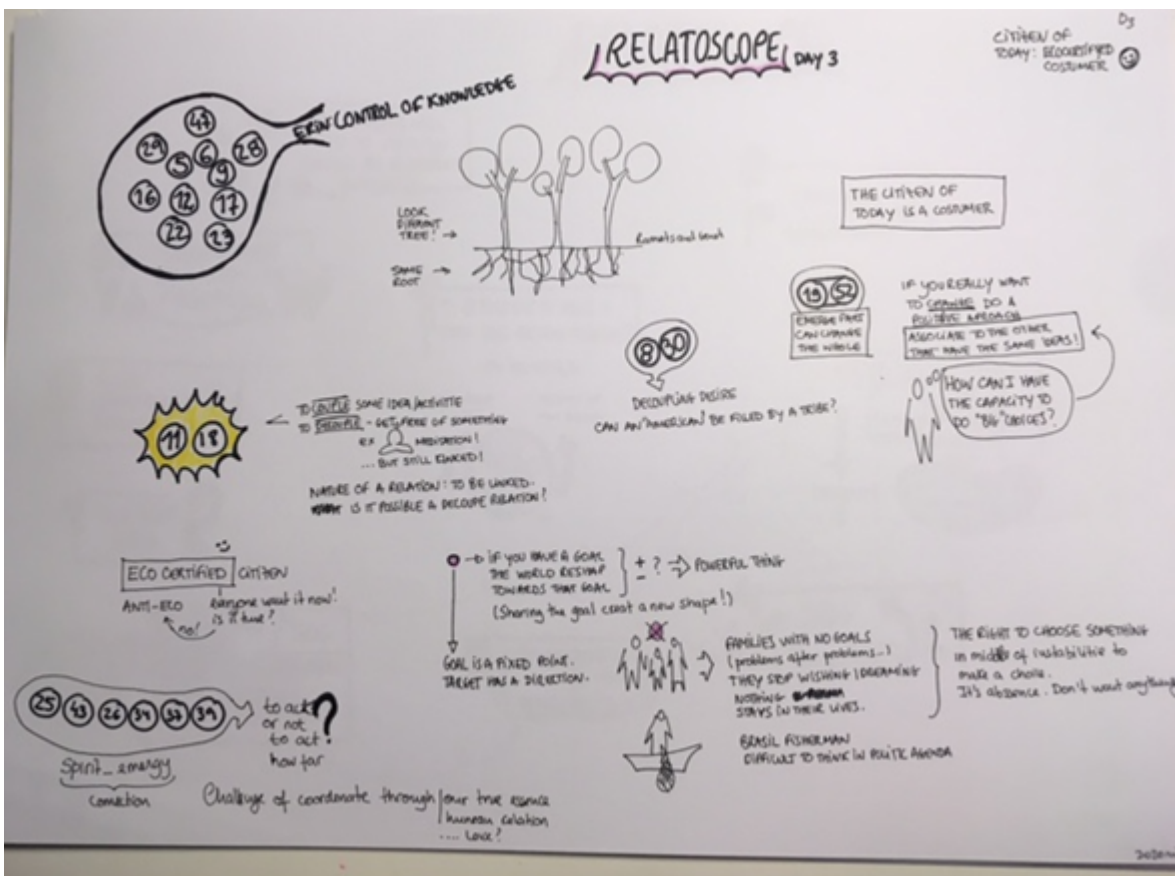 RELATOSCOPE DAY 3
D3
CITIZEN OF
TODAY: ECOCERTIFIED
COSTUMER
CONTROL OF KNOWLEDGE
47
29
5
6
28
9
16
12
17
22
23
LOOK
DIFFERENT
TREE!
SAME
ROOT
THE CITIZEN OF
TODAY IS A COSTUMER
19 52
EMERGE PART
CAN CHANGE
THE WHOLE
IF YOU REALLY WANT
TO CHANGE DO A
POSITIVE APROACH
ASSOCIATE TO THE OTHER
THAT HAVE THE SAME IDEAS!
HOW CAN I HAVE
THE CAPACITY TO
DO "BIG" CHOICES?
8 30
DECOUPLING DESIRE
CAN AN "AMERICAN" BE FILLED BY A TRIBE?
11 18
TO COUPLE SOME IDEA/ACTIVITIE
TO DECOUPLE - GET FREE OF SOMETHING
ex MEDITATION!
... BUT STILL LINKED!
NATURE OF A RELATION: TO BE LINKED.
IS IT POSSIBLE A DECOUPE RELATION?
ECO CERTIFIED CITIZEN
ANTI-ECO
everyone want it now!
is it true?
no!
IF YOU HAVE A GOAL
THE WORLD RESHAP
TOWARDS THAT GOAL
+ ?
-
POWERFUL THING
(Sharing the goal creat a new shape!)
GOAL IS A FIXED POINT.
TARGET HAS A DIRECTION.
FAMILIES WITH NO GOALS
(problems after problems...)
THEY STOP WISHING / DREAMING
NOTHING
STAYS IN THEIR LIVES.
THE RIGHT TO CHOOSE SOMETHING
in middle of instabilitie to
make a choice.
It's absence. Don't want anything
BRASIL FISHERMAN
DIFFICULT TO THINK IN POLITIC AGENDA
25 43 26 34 37 39
to act
or not
to act
how far
?
Spirit_energy
Conection
Challenge of coordenate through
our true essence
human relation
.... Love?